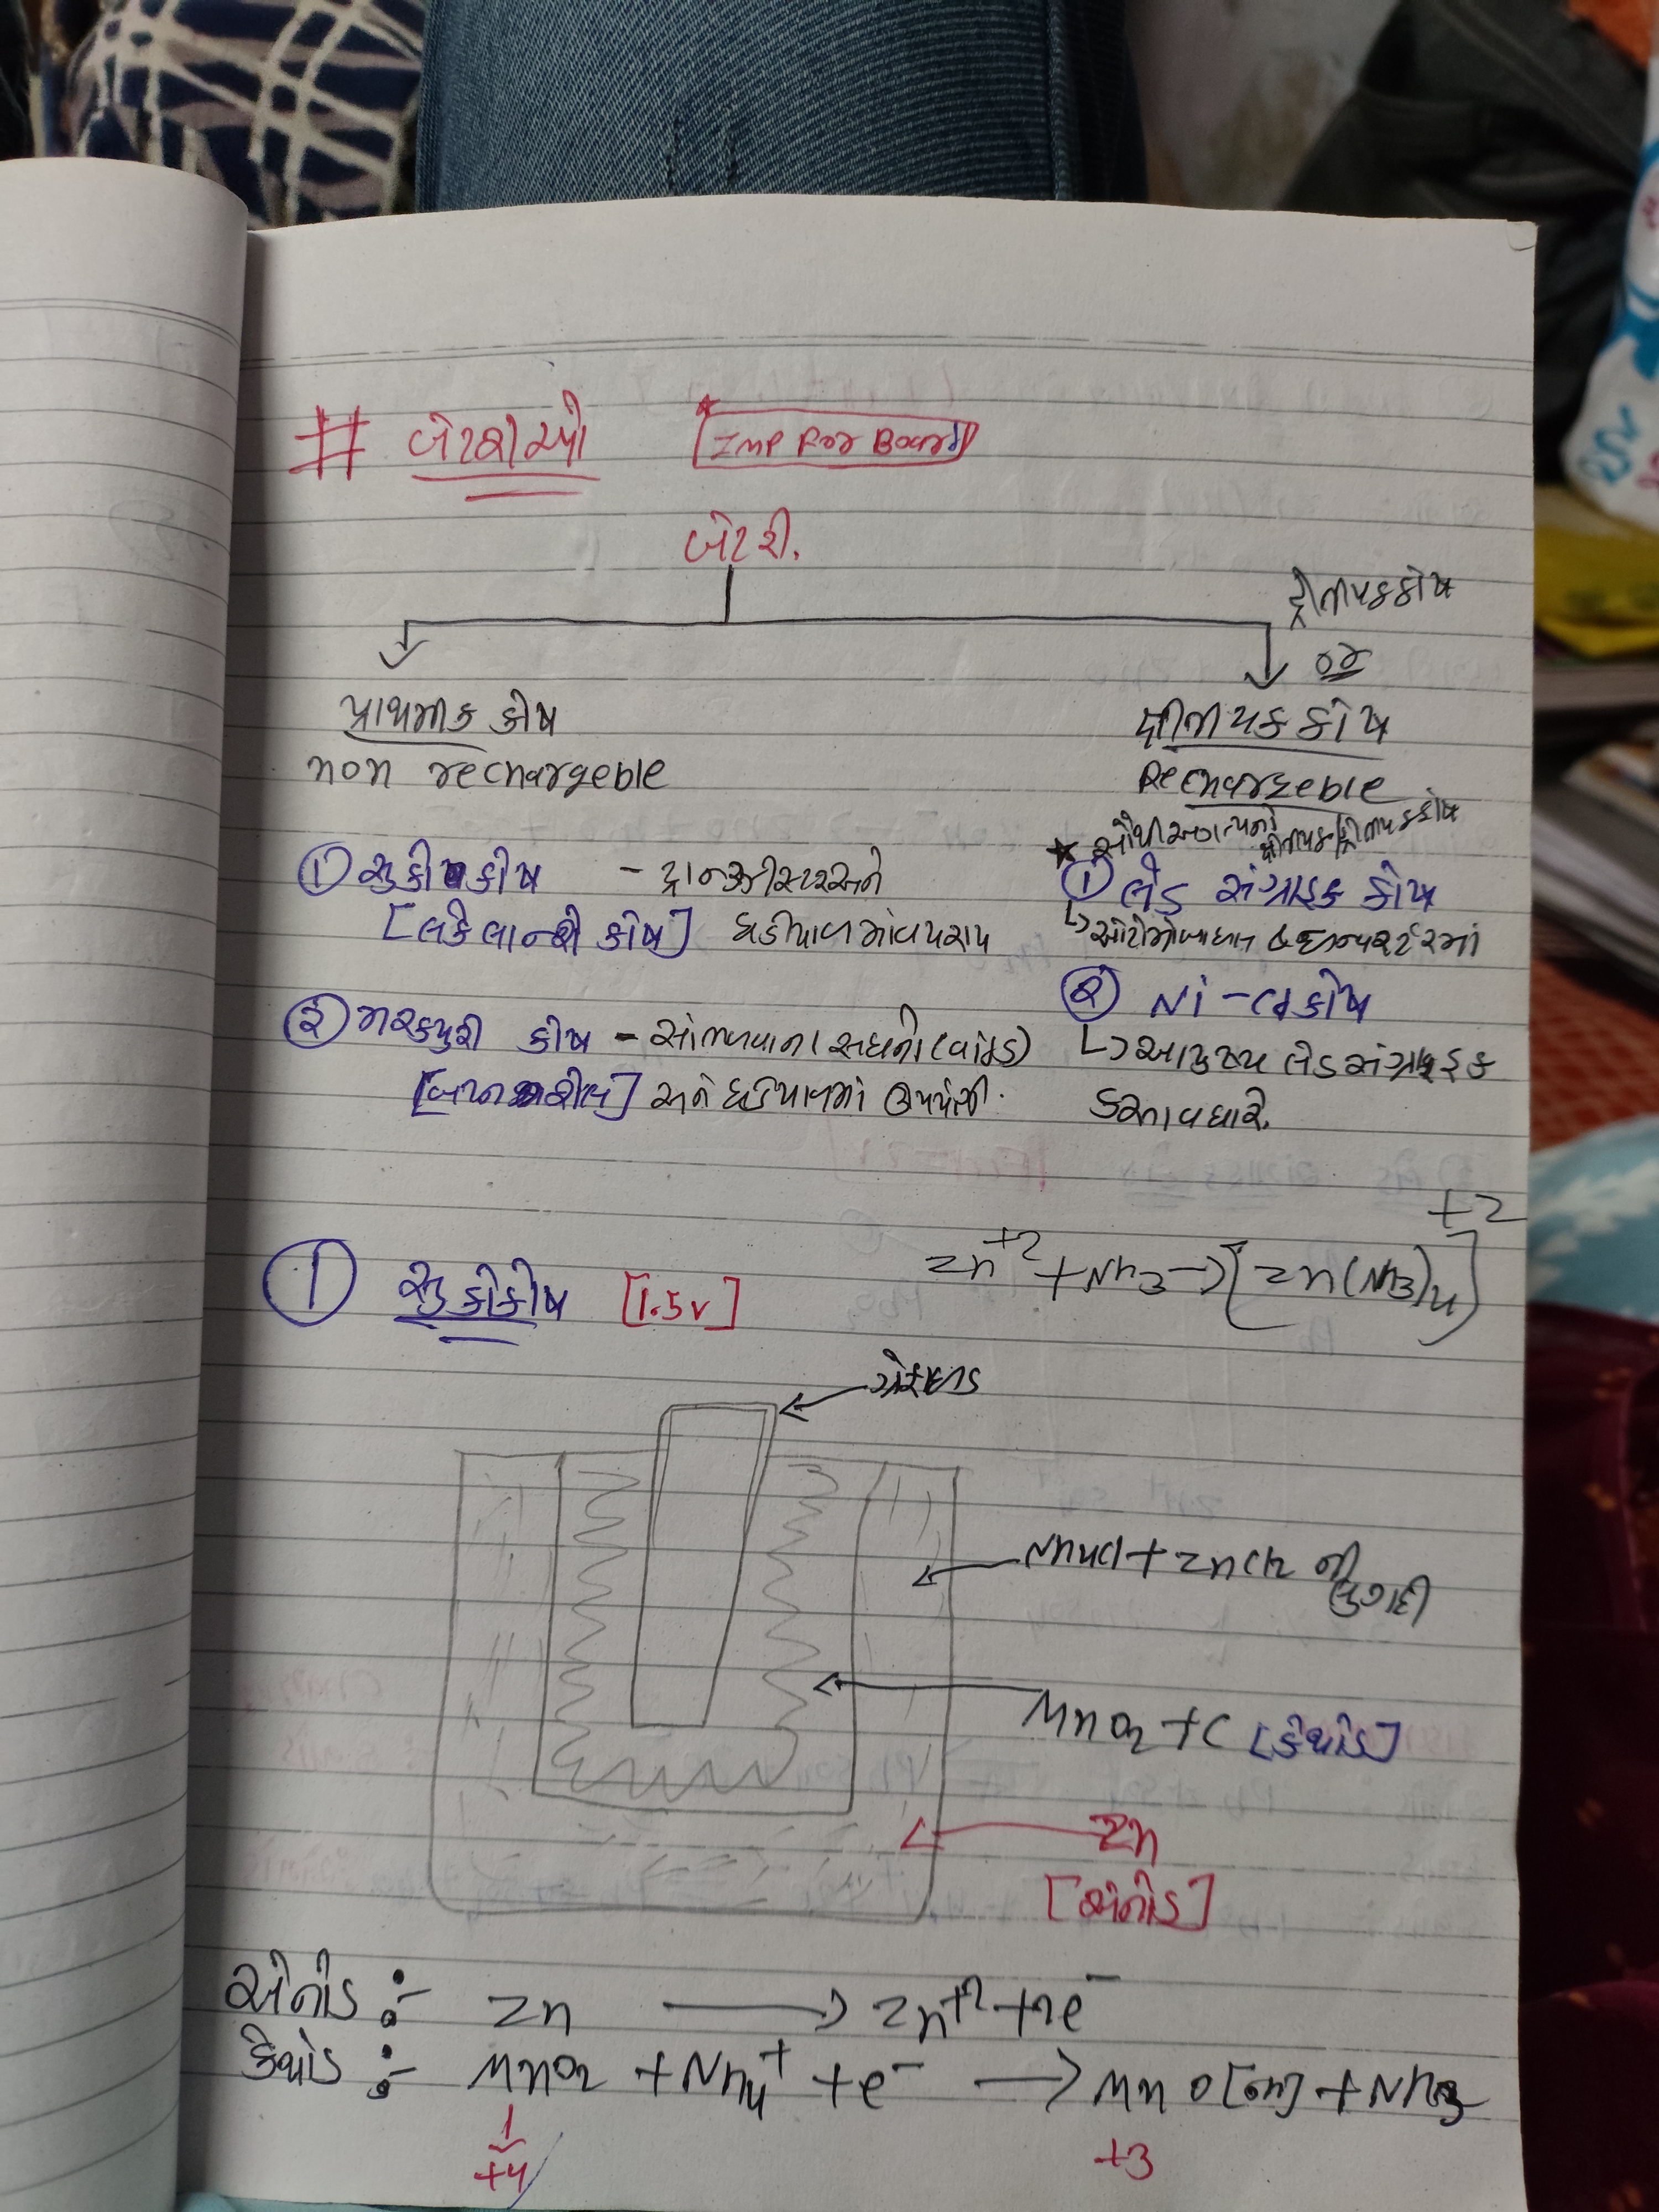 # બેટરીઓ [Imp For Board]
બેટરી.
પ્રાથમીક કોષ
non rechargeble
દ્રીતીયકકોષ
or
દ્વીતીયક કોષ
Rechargeble
① સુકો કોષ - ટ્રાન્ઝીસ્ટરઅને
[લેકેલાન્શે કોષ] ઘડીયાળમાંવપરાય
② મરક્યુરી કોષ - સાંભળવાના સાધનો
અને ઘડિયાળમાં ઉપયોગી.
① લેડ સંગ્રાહક કોષ
↳ ઓટોમોબાઇલ & ઇન્વર્ટરમાં
② Ni-Cd કોષ
↳ આયુષ્ય લેડસંગ્રાહક
કરતાવધારે.
① સુકોકોષ [1.5v]
Zn+2 + NH3 → [Zn(NH3)4]+2
ગ્રેફાઇટ
NH4Cl + ZnCl2 ની
લુગદી
MnO2 + C [કેથોડ]
Zn
[એનોડ]
એનોડ :- Zn → Zn+2 + 2e-
કેથોડ :- MnO2 + NH4+ + e- → MnO[OH] + NH3
+4
+3